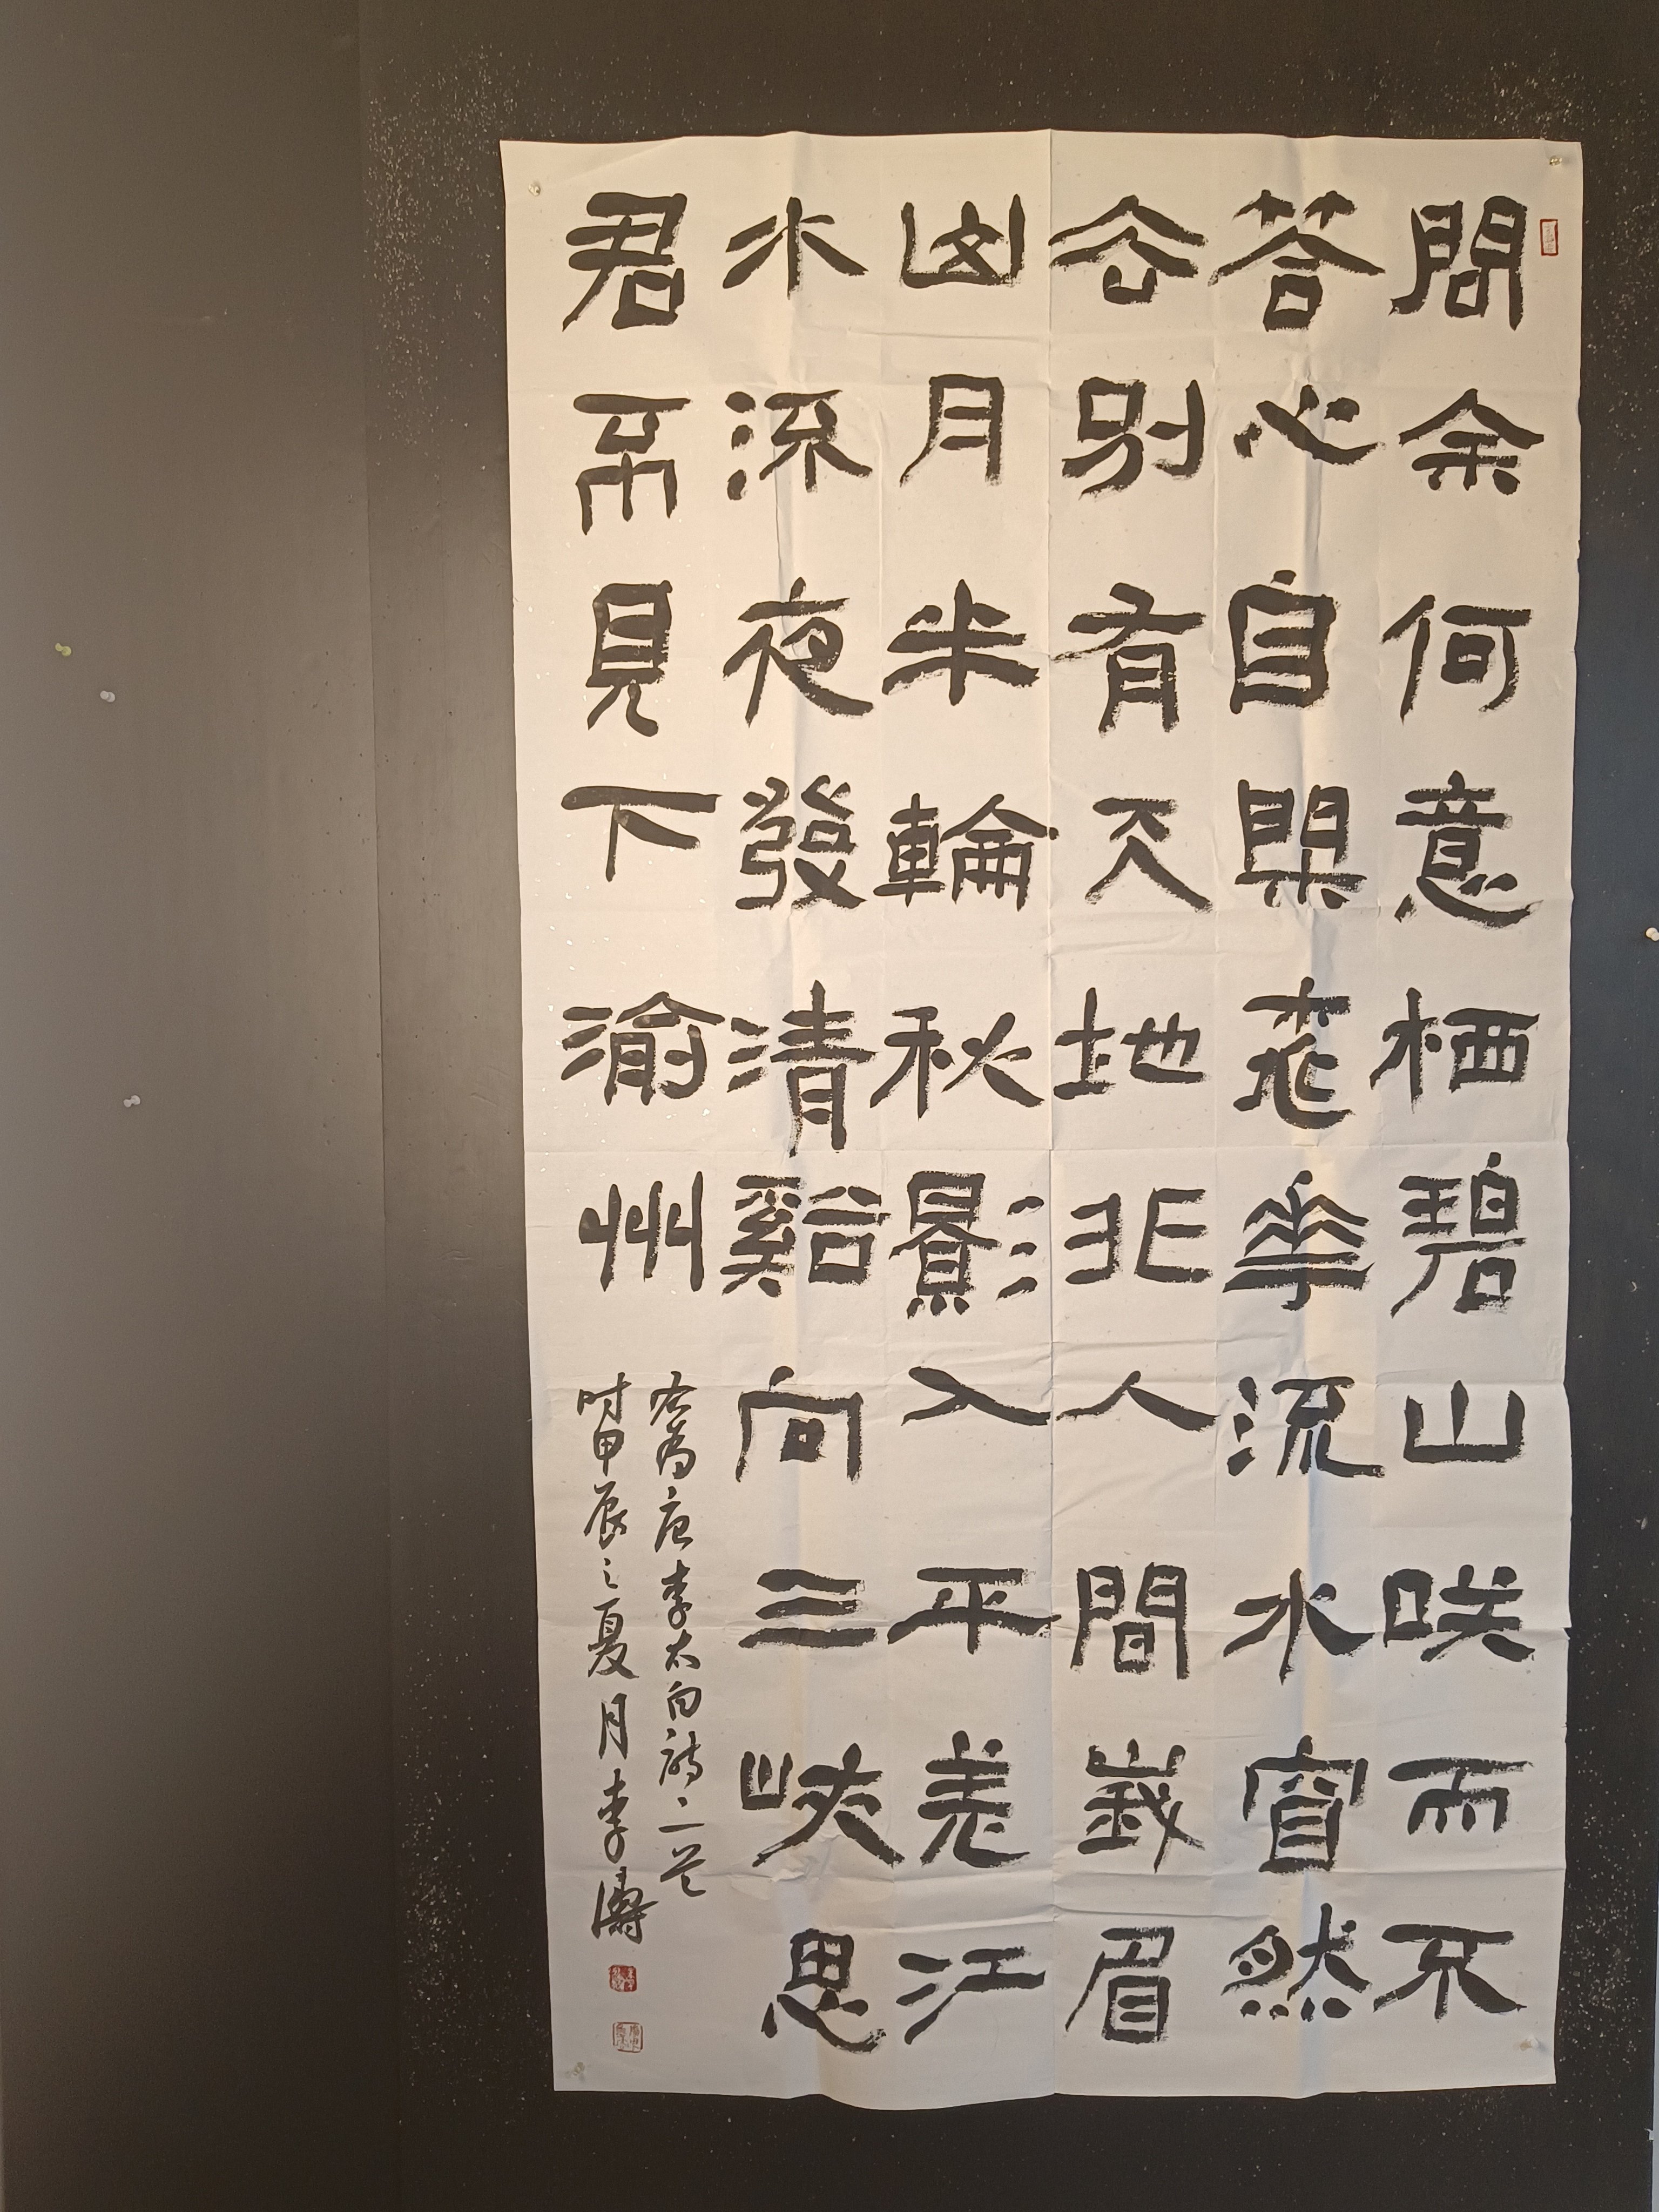 問余何意栖碧山咲而不
答心自閑桃華流水窅然
去别有天地非人間峩眉
山月半輪秋影入平羌江
水流夜發清谿向三峽思
君不見下渝州
右為唐李太白詩二首
时甲辰之夏月李濤